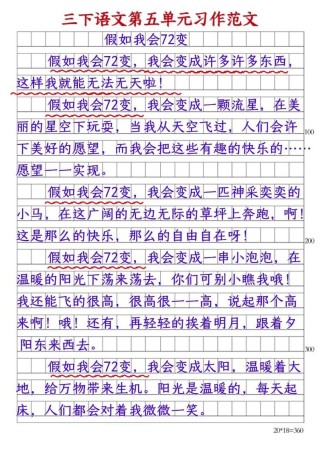 三下语文第五单元习作范文
假如我会72变
假如我会72变，我会变成许多许多东西，
这样我就能无法无天啦！
假如我会72变，我会变成一颗流星，在美
丽的星空下玩耍，当我从天空飞过，人们会许
下美好的愿望，而我会把这些有趣的快乐的……
愿望一一实现。
假如我会72变，我会变成一匹神采奕奕的
小马，在这广阔的无边无际的草坪上奔跑，啊！
这是那么的快乐，那么的自由自在呀！
假如我会72变，我会变成一串小泡泡，在
温暖的阳光下荡来荡去，你们可别小瞧我哦！
我还能飞的很高，很高很高一高，说起那个高
来啊！哦！还有，再轻轻的挨着明月，跟着夕
阳东来西去。
假如我会72变，我会变成太阳，温暖着大
地，给万物带来生机。阳光是温暖的，每天起
床，人们都会对着我微微一笑。
100
200
300
20*18=360